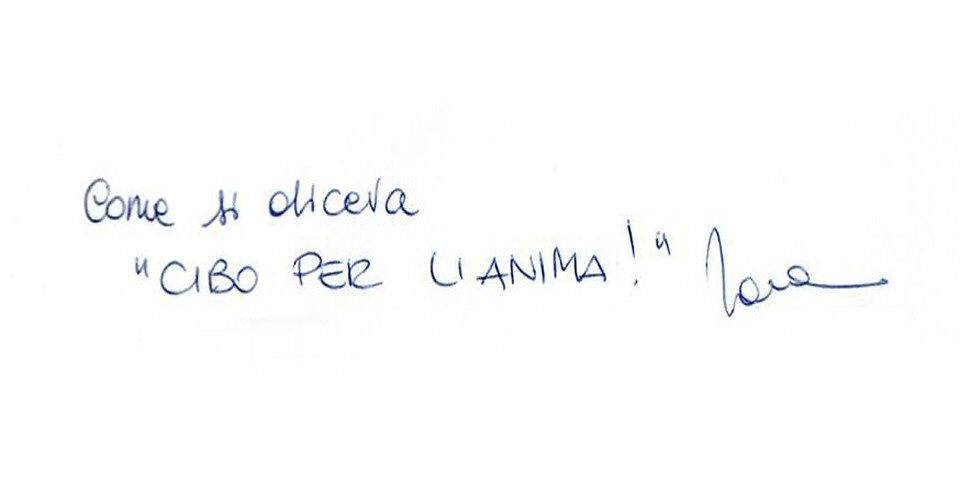 Come si diceva
"CIBO PER L'ANIMA!"